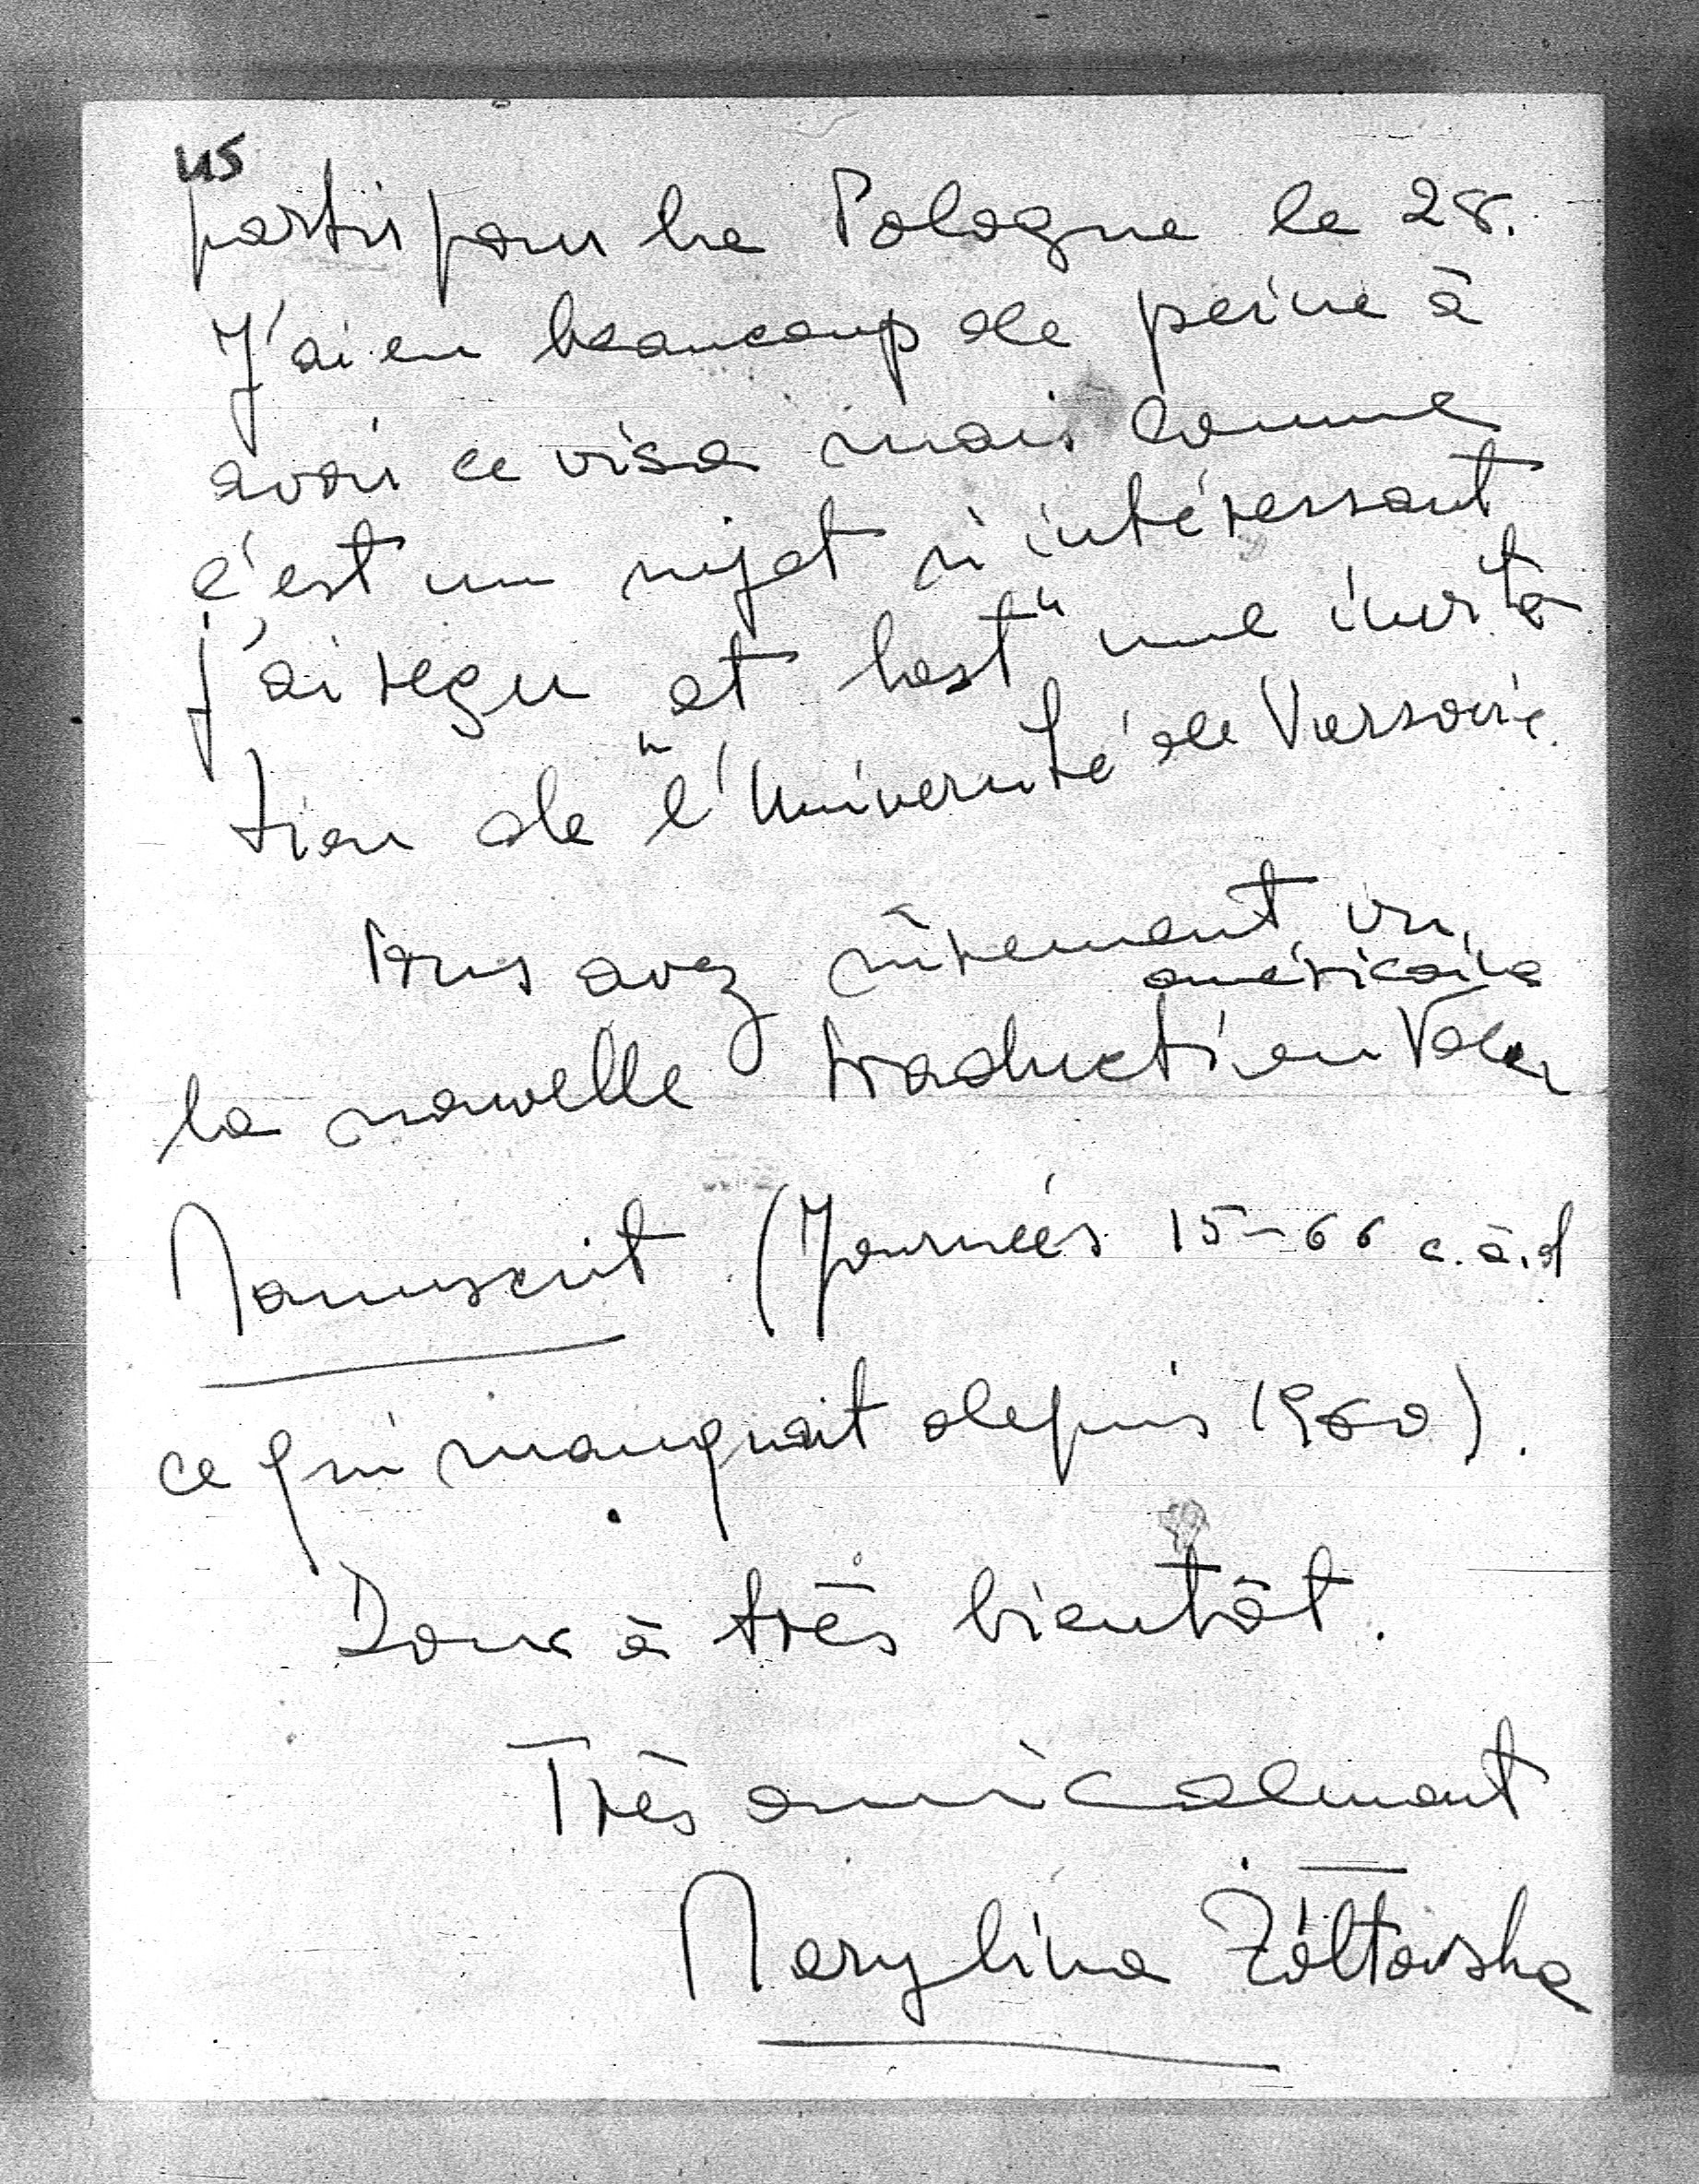 45
partir pour la Pologne le 28.
J'ai eu beaucoup de peine à
avoir ce visa mais comme
c'est un sujet si intéressant
j'ai reçu "at last" une invita
tion de l'Université de Varsovie.
Vous avez sûrement vu
américaine
la nouvelle traduction
Manuscrit (Journées 15-66 c.à.d
ce qui manquait depuis 1960).
Donc à très bientôt.
Très amicalement
Marylina Żółtowska